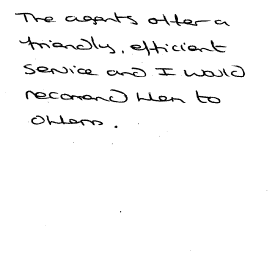 The agents offer a
friendly, efficient
service and I would
recommend them to
others.